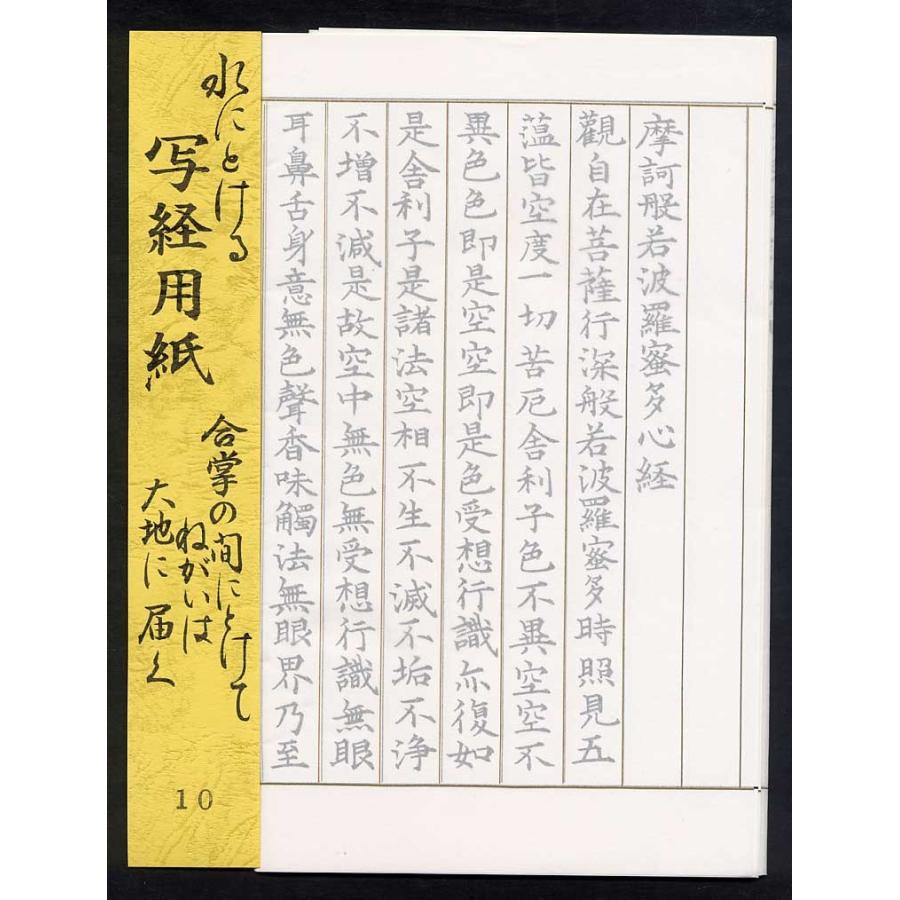 摩訶般若波羅蜜多心経
觀自在菩薩行深般若波羅蜜多時照見五
蘊皆空度一切苦厄舍利子色不異空空不
異色色即是空空即是色受想行識亦復如
是舍利子是諸法空相不生不滅不垢不浄
不增不減是故空中無色無受想行識無眼
耳鼻舌身意無色聲香味觸法無眼界乃至
水にとける
写経用紙
合掌の間にとけて
ねがいは
大地に届く
10